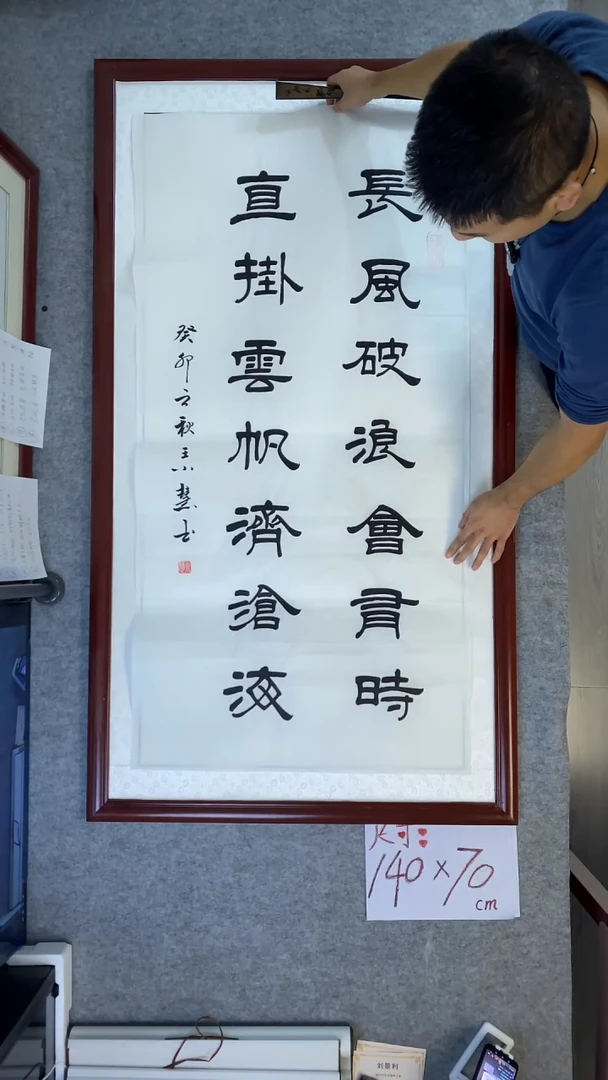 長風破浪會有時
直掛雲帆濟滄海
癸卯立秋王小慧書
140×70
cm
刘景利